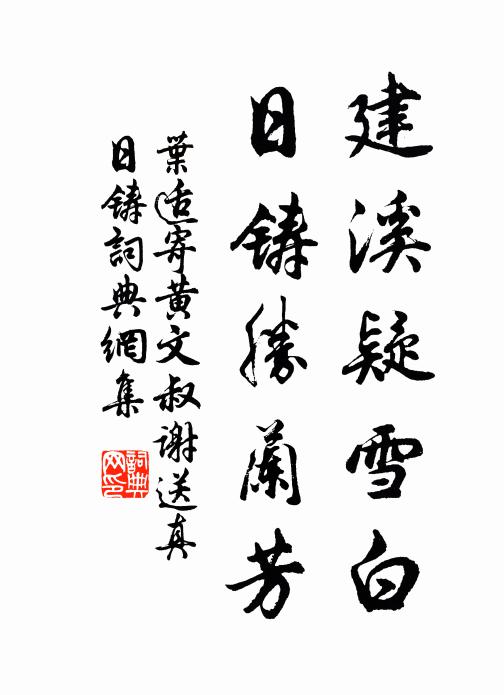 建溪疑雪白
日鑄勝蘭芳
葉适寄黃文叔謝送真
日鑄詞典網集
詞典网印